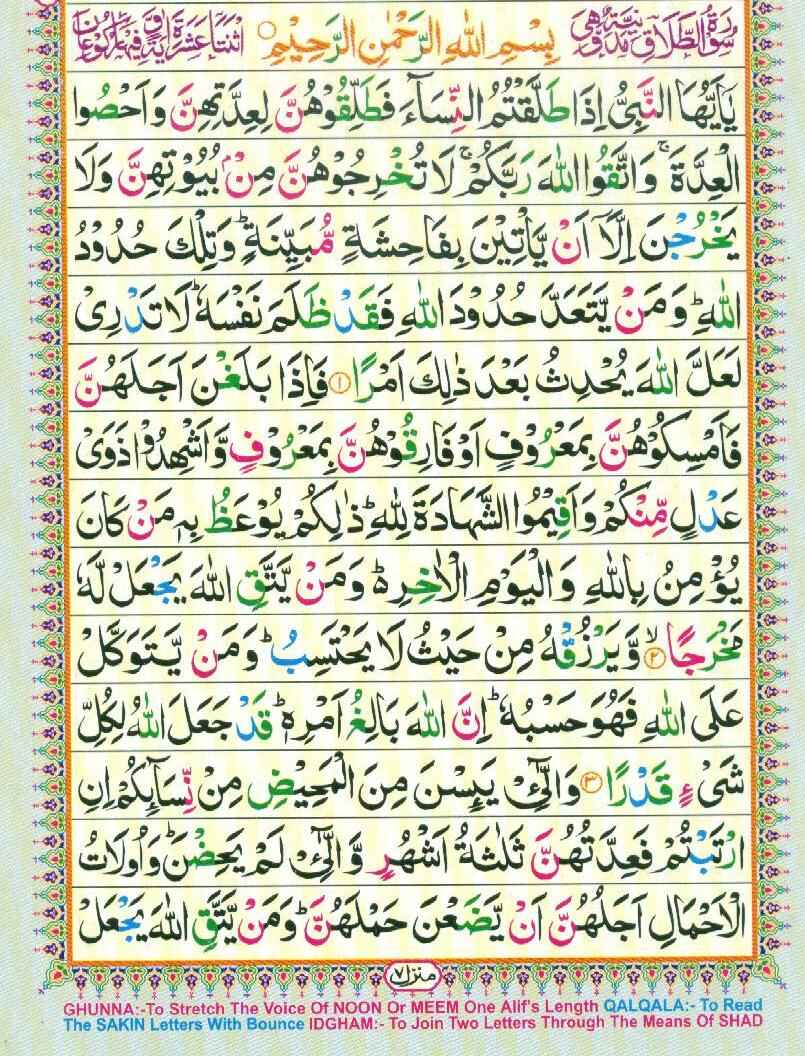 سُوْرَةُ الطَّلَاقِ مَدَنِيَّةٌ وَّهِيَ بِسْمِ اللّٰهِ الرَّحْمٰنِ الرَّحِيْمِ اثْنَتَا عَشْرَةَ اٰيَةً وَّفِيْهَا رُكُوْعَانِ
يٰۤاَيُّهَا النَّبِىُّ اِذَا طَلَّقْتُمُ النِّسَآءَ فَطَلِّقُوْهُنَّ لِعِدَّتِهِنَّ وَاَحْصُوا
الْعِدَّةَ ۚ وَاتَّقُوا اللّٰهَ رَبَّكُمْ ۚ لَا تُخْرِجُوْهُنَّ مِنْۢ بُيُوْتِهِنَّ وَلَا
يَخْرُجْنَ اِلَّاۤ اَنْ يَّاْتِيْنَ بِفَاحِشَةٍ مُّبَيِّنَةٍ ؕ وَتِلْكَ حُدُوْدُ
اللّٰهِ ؕ وَمَنْ يَّتَعَدَّ حُدُوْدَ اللّٰهِ فَقَدْ ظَلَمَ نَفْسَهٗ ؕ لَا تَدْرِىْ
لَعَلَّ اللّٰهَ يُحْدِثُ بَعْدَ ذٰلِكَ اَمْرًا ۝۱ فَاِذَا بَلَغْنَ اَجَلَهُنَّ
فَاَمْسِكُوْهُنَّ بِمَعْرُوْفٍ اَوْ فَارِقُوْهُنَّ بِمَعْرُوْفٍ وَّاَشْهِدُوْا ذَوَىْ
عَدْلٍ مِّنْكُمْ وَاَقِيْمُوا الشَّهَادَةَ لِلّٰهِ ؕ ذٰلِكُمْ يُوْعَظُ بِهٖ مَنْ كَانَ
يُؤْمِنُ بِاللّٰهِ وَالْيَوْمِ الْاٰخِرِ ؕ۬ وَمَنْ يَّتَّقِ اللّٰهَ يَجْعَلْ لَّهٗ
مَخْرَجًا ۝۲ۙ وَّيَرْزُقْهُ مِنْ حَيْثُ لَا يَحْتَسِبُ ؕ وَمَنْ يَّتَوَكَّلْ
عَلَى اللّٰهِ فَهُوَ حَسْبُهٗ ؕ اِنَّ اللّٰهَ بَالِغُ اَمْرِهٖ ؕ قَدْ جَعَلَ اللّٰهُ لِكُلِّ
شَىْءٍ قَدْرًا ۝۳ وَالّٰٓـئِْ يَئِسْنَ مِنَ الْمَحِيْضِ مِنْ نِّسَآئِكُمْ اِنِ
ارْتَبْتُمْ فَعِدَّتُهُنَّ ثَلٰثَةُ اَشْهُرٍ وَّالّٰٓـئِْ لَمْ يَحِضْنَ ؕ وَاُولَاتُ
الْاَحْمَالِ اَجَلُهُنَّ اَنْ يَّضَعْنَ حَمْلَهُنَّ ؕ وَمَنْ يَّتَّقِ اللّٰهَ يَجْعَلْ
منزل ۷
GHUNNA:-To Stretch The Voice Of NOON Or MEEM One Alif's Length QALQALA:- To Read
The SAKIN Letters With Bounce IDGHAM:- To Join Two Letters Through The Means Of SHAD